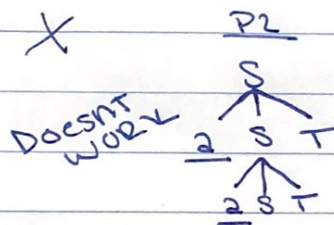 X P2
S
DOESNT
WORK
a S T
a S T